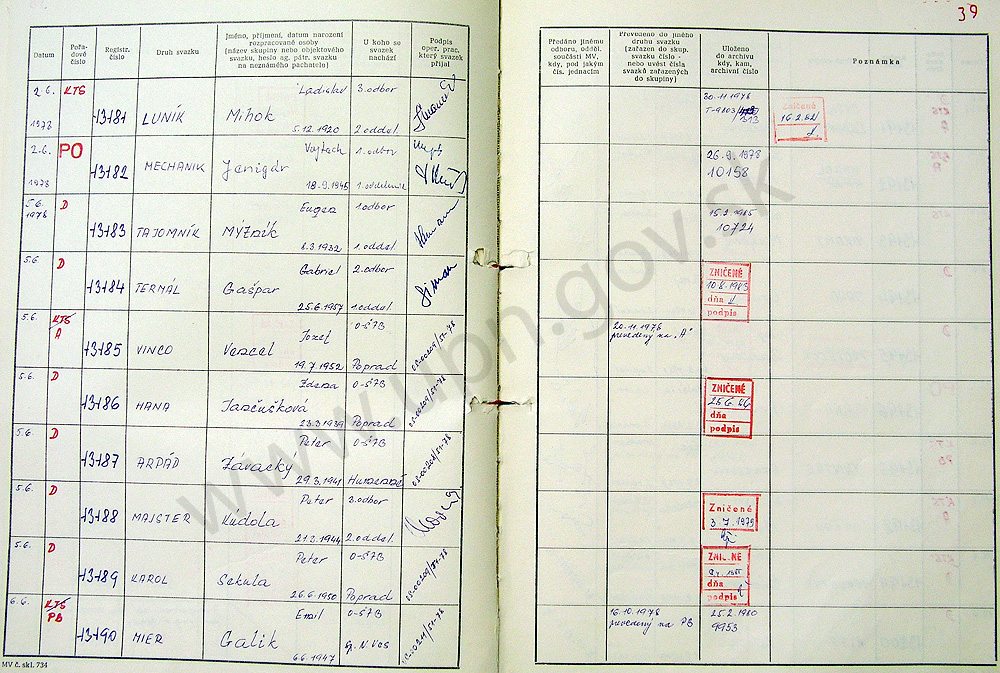 39
Datum
Pořadové číslo
Registr. číslo
Druh svazku
Jméno, příjmení, datum narození rozpracované osoby (název skupiny nebo objektového svazku, heslo ag. pátr. svazku na neznámého pachatele)
U koho se svazek nachází
Podpis oper. prac. který svazek přijal
Předáno jinému odboru, odděl. součásti MV, kdy, pod jakým čís. jednacím
Převedeno do jiného druhu svazku (zařazen do skup. svazku číslo - nebo uvést čísla svazků zařazených do skupiny)
Uloženo do archivu kdy, kam, archivní číslo
Poznámka
2.6. KTS Ladislav 3.odbor 30.11.1978
1978 13181 LUNÍK Mihok Zničené
5.12.1920 2.oddel. 16.2.
2.6. PO Vojtech 1.odbor 26.9.1978
1978 13182 MECHANIK Janigár 10158
18.9.1945 1.oddelenie
5.6. D Eugen 1.odbor 15.2.1985
1978 13183 TAJOMNÍK 10724
8.3.1932 1.oddel.
5.6 D Gabriel 2.odbor ZNIČENÉ
13184 TERMÁL Gašpar 10.8.1983
25.6.1957 1.oddel. dňa
podpis
5.6. KTS Jozef O-ŠTB 20.11.1978
A 13185 VINCO Vencel prevedený na "A"
19.7.1952 Poprad
5.6. D Zdena O-ŠTB ZNIČENÉ
13186 HANA Jančušková 25.6.
23.3.1939 Poprad dňa
podpis
5.6. D Peter O-ŠTB
13187 ARPÁD Zavacky
29.3.1941 Humenné
5.6. D Peter 3.odbor Zničené
13188 MAJSTER Kudola 3.7.1979
21.2.1944 2.oddel.
5.6. D Peter O-ŠTB ZNIČENÉ
13189 KAROL Sekula dňa
26.6.1950 Poprad podpis
6.6. KTS Emil O-ŠTB 16.10.1978 25.2.1980
PB 13190 MIER Galik prevedený na PB 9953
6.6.1947 Sp.N.Ves
MV č. skl. 734
www.upn.gov.sk